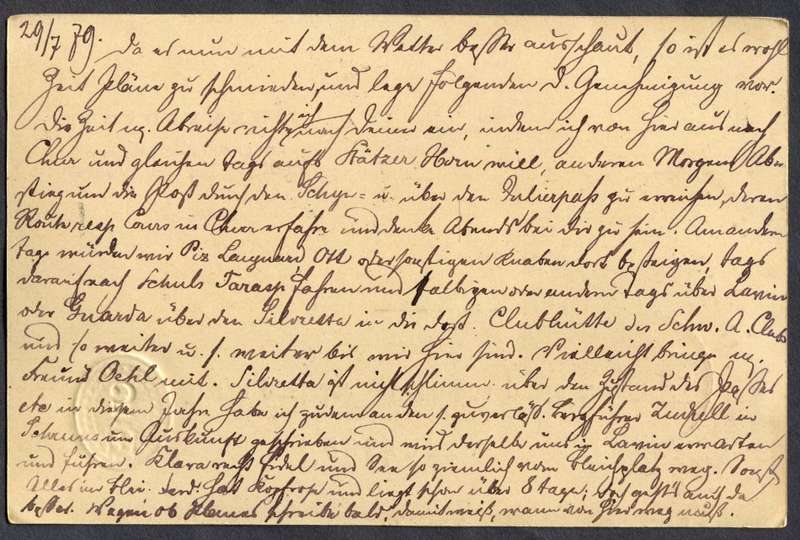 29/7 79. Da es nun mit dem Wetter besser ausschaut, so ist es wohl
Zeit Pläne zu schmieden, und lege folgenden d. Genehmigung vor.
Die Zeit m. Abreise richte ich nach deiner ein, indem ich von hier aus nach
Chur und gleichen tags aufs Stätzer Horn will, anderen Morgens Ab-
stieg um die Post durch den Schyn- u. über den Julierpass zu erreichen, deren
Route resp Cours in Chur erfahre und denke Abends bei dir zu sein. Am andern
tage würden wir Piz Languard Ott oder sonstigen Knaben dort besteigen, tags
darauf nach Schuls Tarasp fahren und selbigen oder andern tags über Lavin
oder Guarda über den Silvretta in die dort. Clubhütte des Schw. A. Clubs
und so weiter u. s. weiter bis wir hier sind. Vielleicht bringe m.
Freund Oehl mit. Silvretta ist nicht schlimm. über den Zustand des Passes
etc in diesem Jahre habe ich zudem an den s. zuverläss. Bergführer in
um Auskunft geschrieben und wird derselbe uns in Lavin erwarten
und führen. Klara recht fidel und See so ziemlich vom Bleichplatz weg. Sonst
Alles im Blei. Ferd. hat Kopfrose und liegt schon über 8 tage; doch geht's auch da
besser. Wegen ob schreibe bald, damit weiß, wann von hier weg muß.